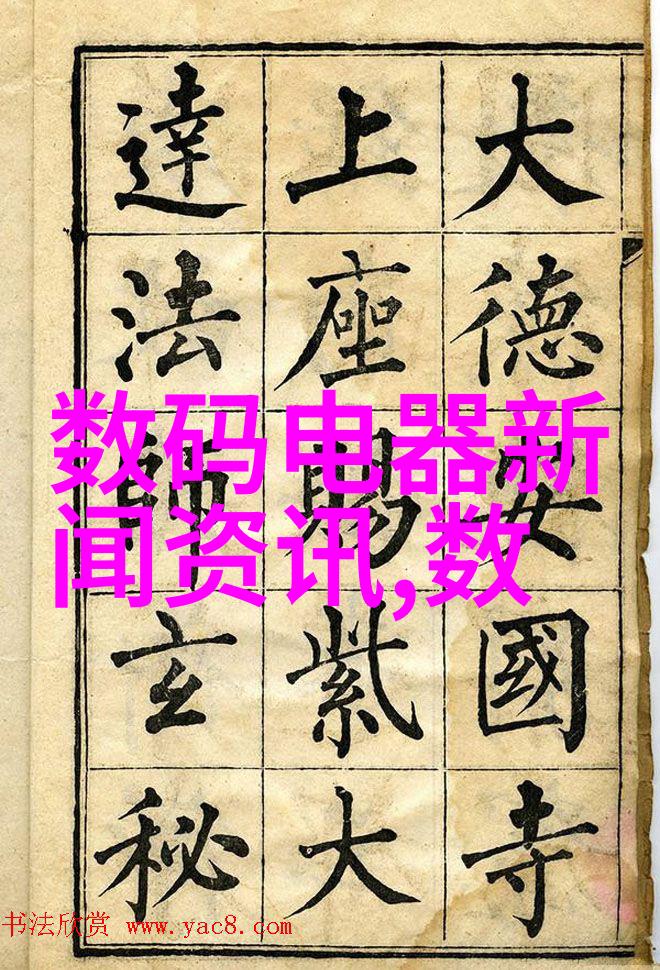 大德安國寺
上座賜紫大
達法師玄秘
数码电器新
闻资讯,数
书法欣赏 www.yac8.com